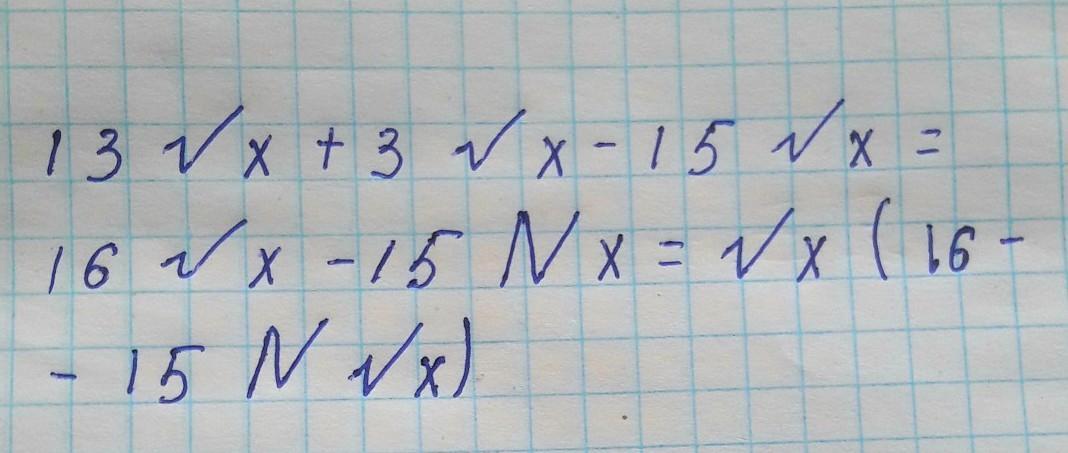 13 √x + 3 √x - 15 √x =
16 √x - 15 N x = √x ( 16 -
- 15 N √x)